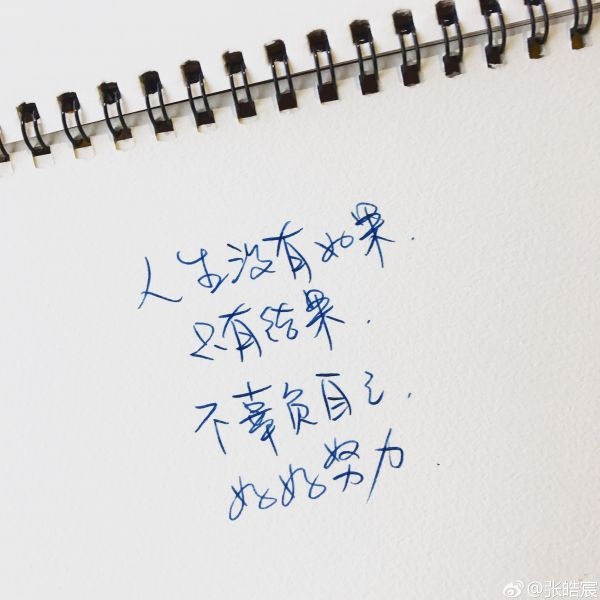 人生没有如果.
只有结果.
不辜负自己.
好好努力.
@张皓宸